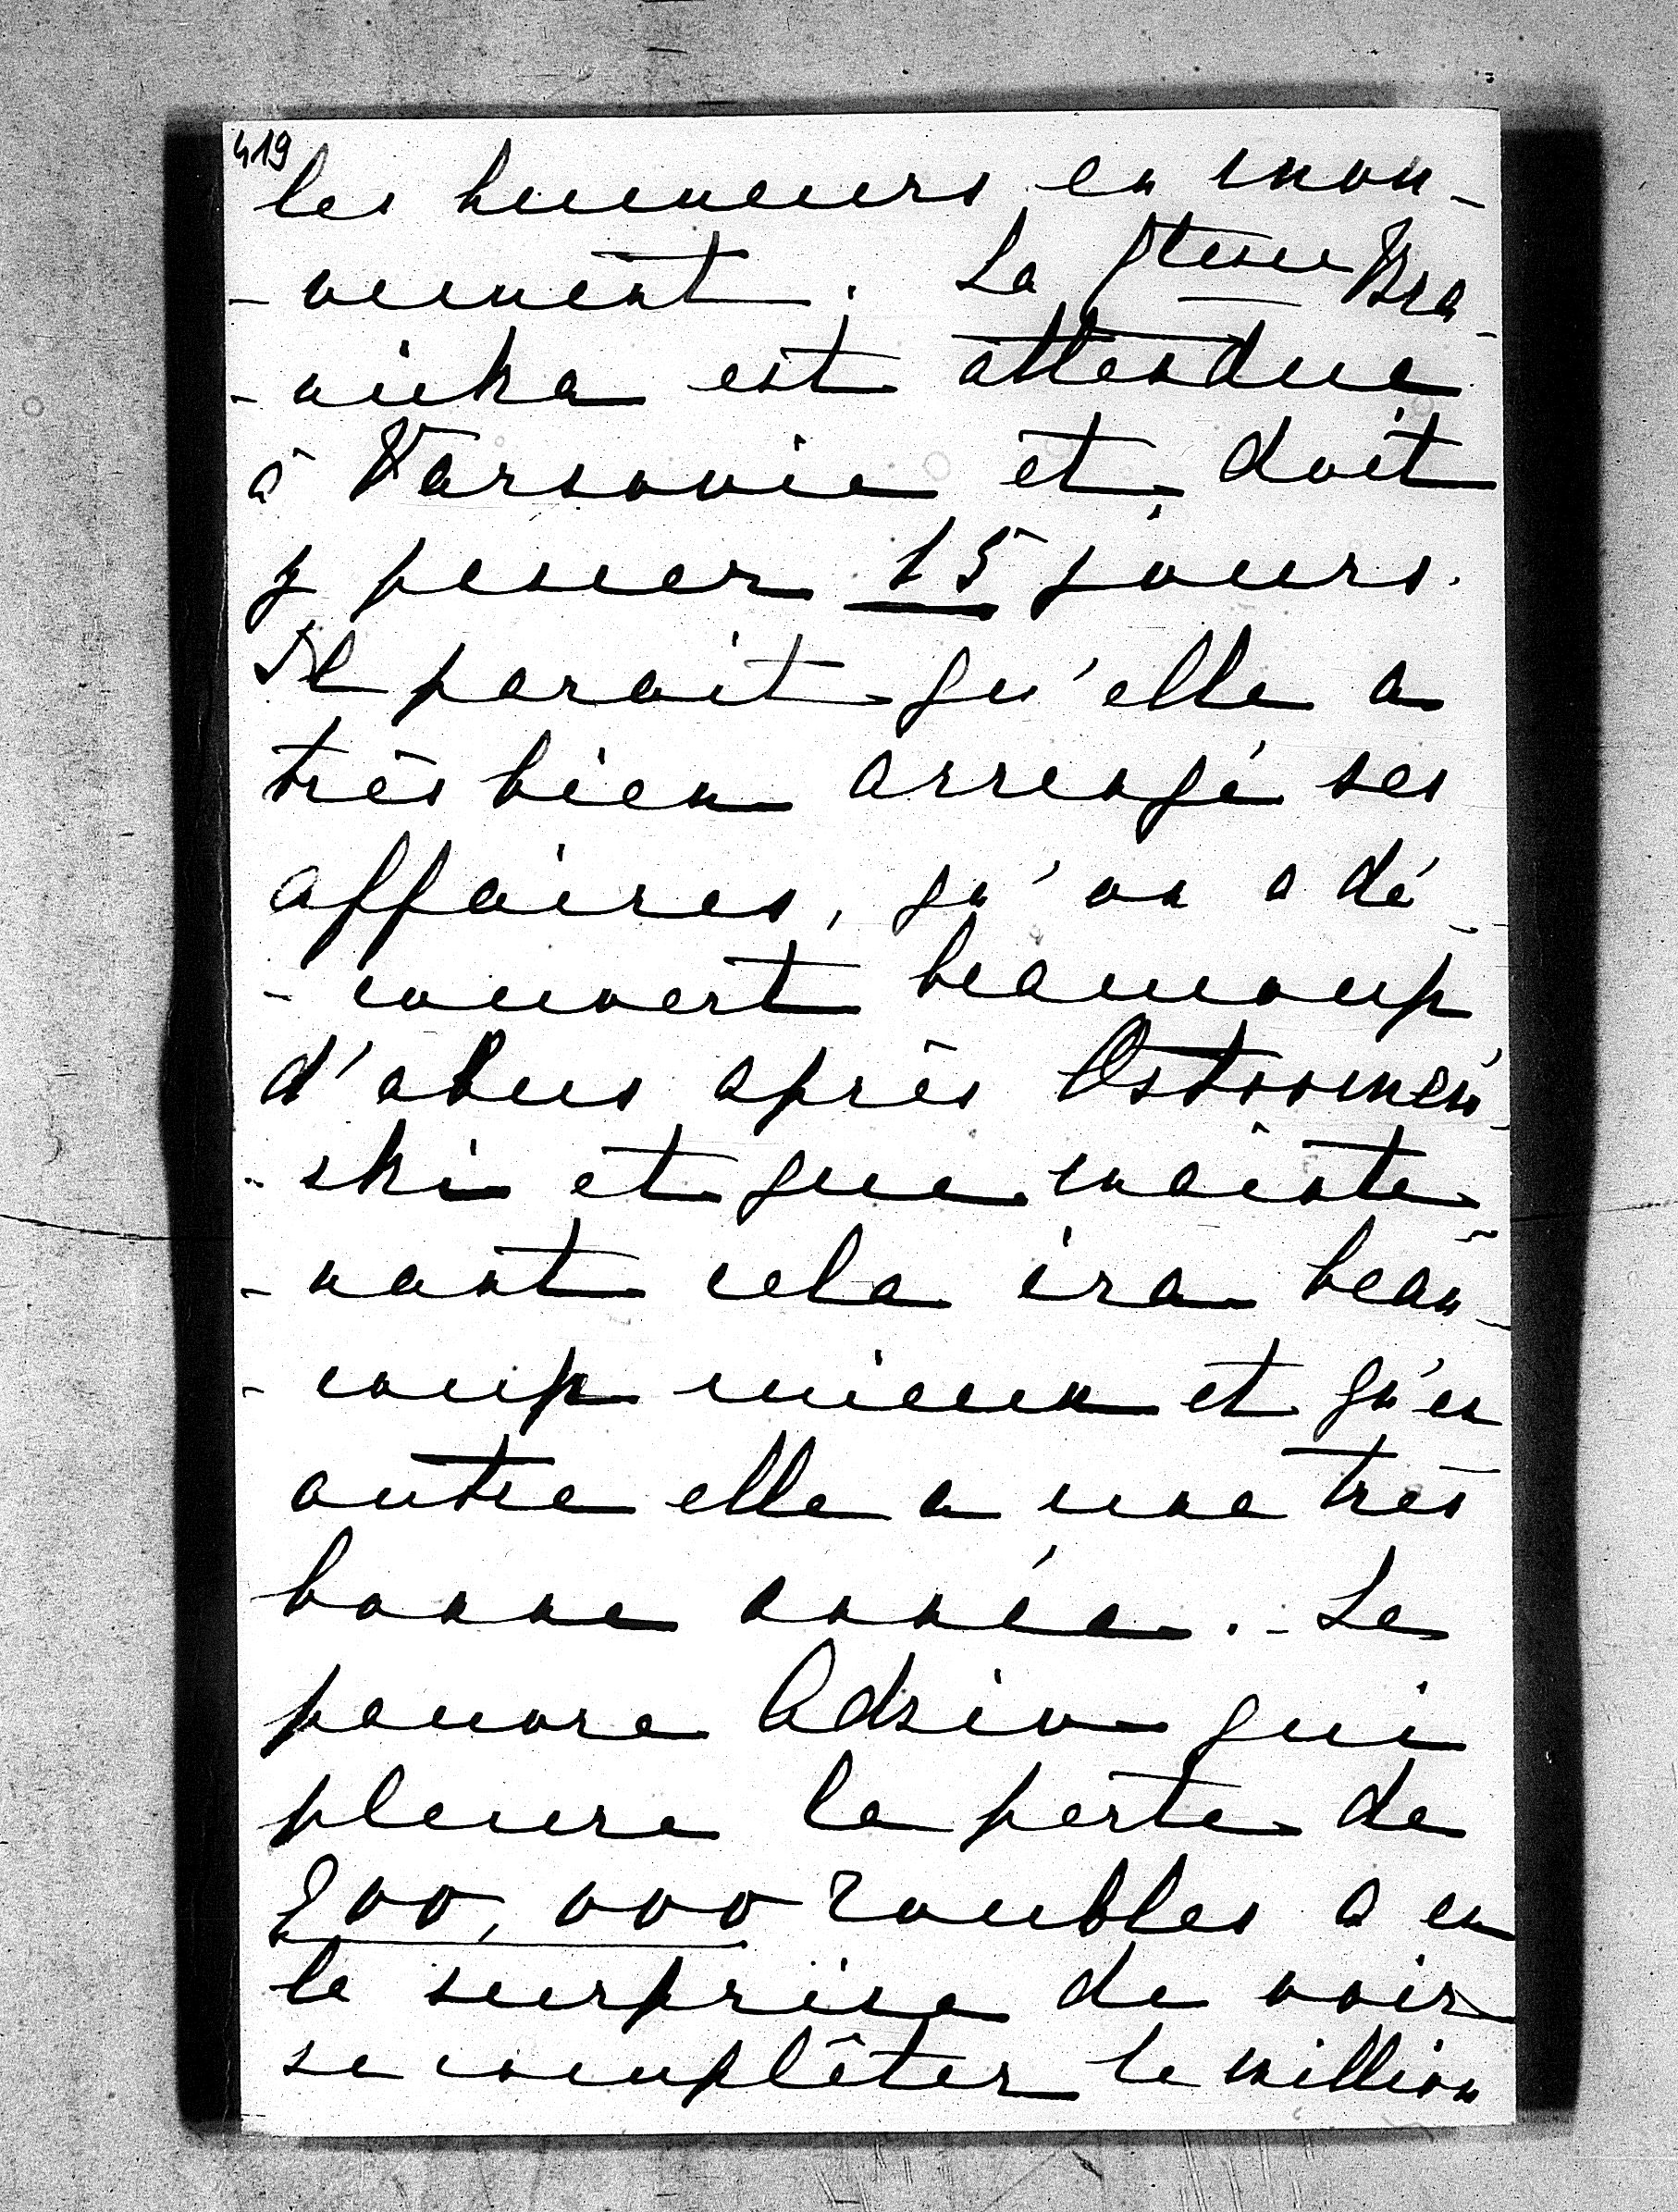 419
les humeurs en mou-
-vement. La Ctesse Bra-
-nicka est attendue
à Varsovie et doit
y passer 15 jours.
Il parait qu'elle a
très bien arrangé ses
affaires, qu'on a dé-
-couvert beaucoup
d'abus après Ostromęc-
-ski et que mainte-
-nant cela ira beau-
-coup mieux et qu'en
outre elle a une très
bonne année. - Le
pauvre Adzio qui
pleure la perte de
200,000 roubles a eu
la surprise de voir
se complêter le million